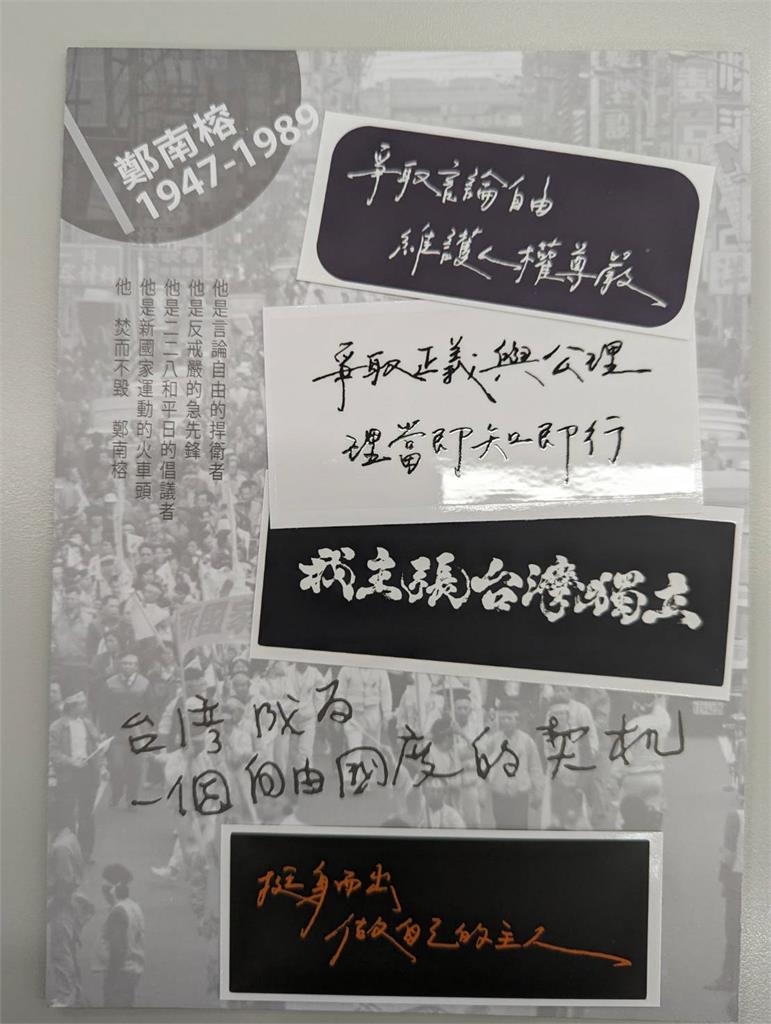 鄭南榕
1947-1989
爭取言論自由
維護人權尊嚴
他是言論自由的捍衛者
他是反戒嚴的急先鋒
他是二二八和平日的倡議者
他是新國家運動的火車頭
他 焚而不毀 鄭南榕
爭取正義與公理
理當即知即行
我主張台灣獨立
台湾成为
一個自由國度的契机
挺身而出
做自己的主人